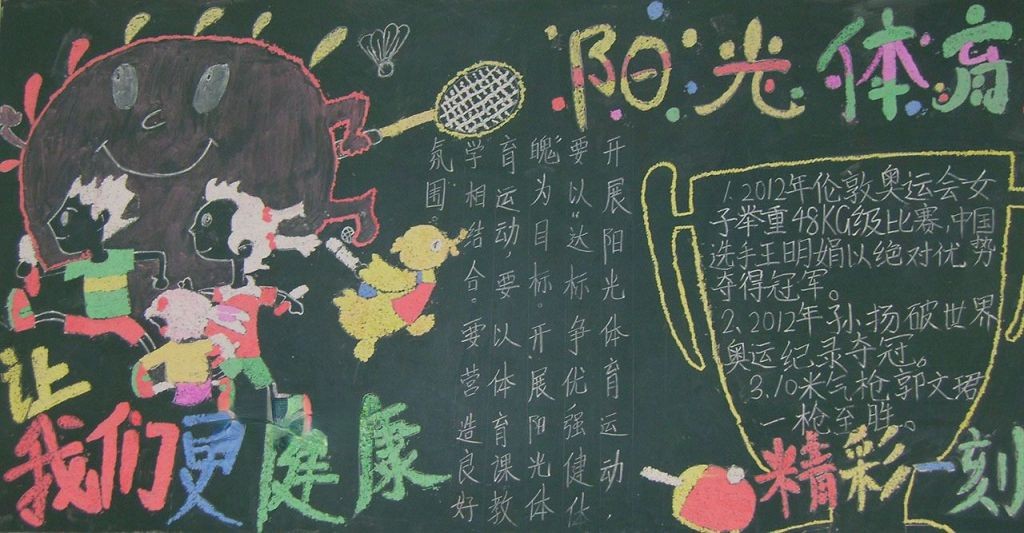 阳光体育
开展阳光体育运动,
要以“达标争优强健体
魄”为目标。开展阳光体
育运动,要以体育课教
学相结合。要营造良好
氛围。
1.2012年伦敦奥运会女
子举重48KG级比赛,中国
选手王明娟以绝对优势
夺得冠军。
2、2012年孙扬破世界
奥运纪录夺冠。
3.10米气枪郭文珺
一枪至胜。
精彩一刻
让
我们更健康